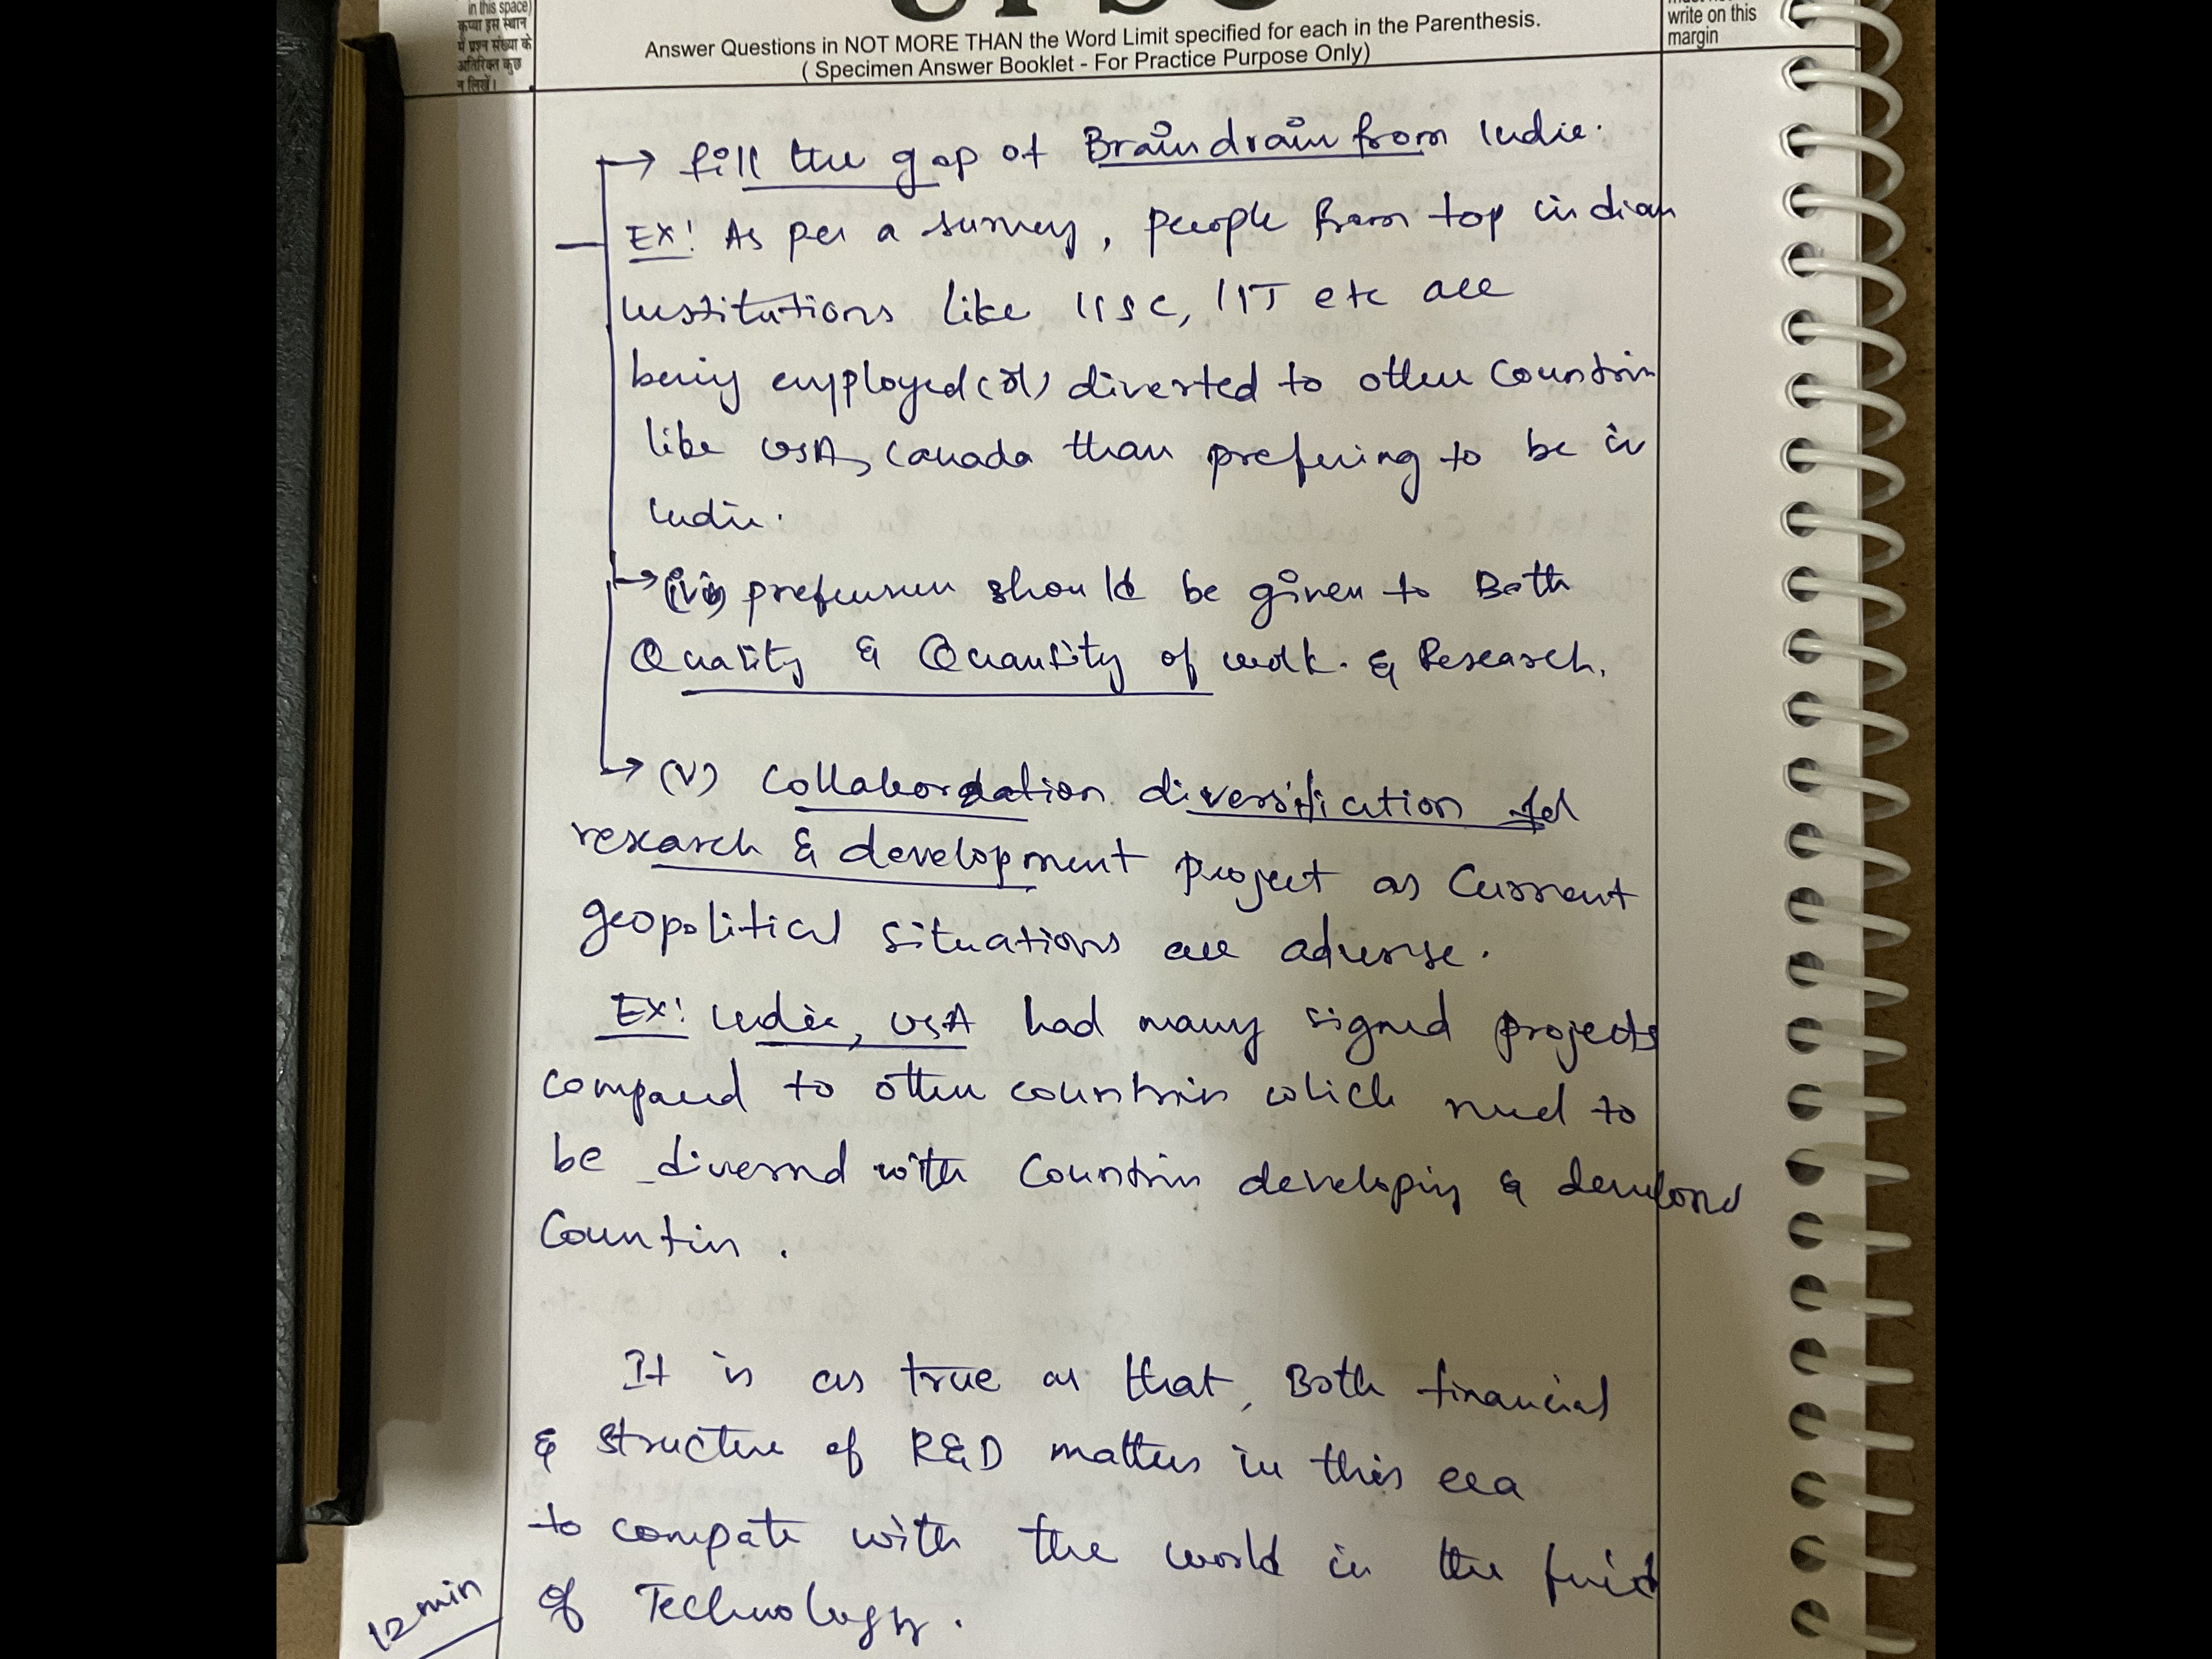 in this space)
कृप्या इस स्थान
में प्रश्न संख्या के
अतिरिक्त कुछ
न लिखें।
UPSC
Answer Questions in NOT MORE THAN the Word Limit specified for each in the Parenthesis.
( Specimen Answer Booklet - For Practice Purpose Only)
write on this
margin
→ fill the gap of Braindrain from India.
EX: As per a survey, people from top indian
institutions like IISC, IIT etc are
being employed (or) diverted to other countries
like USA, Canada than prefering to be in
India.
→ (iv) preference should be given to Both
Quality & Quantity of work. & Research.
→ (v) Collaboration diversification for
research & development project as Current
geopolitical situations are adverse.
EX: India, USA had many signed projects
compared to other countries which need to
be with Countries developing & developed
Countries.
It is as true as that, Both financial
& structure of R&D matters in this era
to compate with the world in the field
of Technology.
12 min